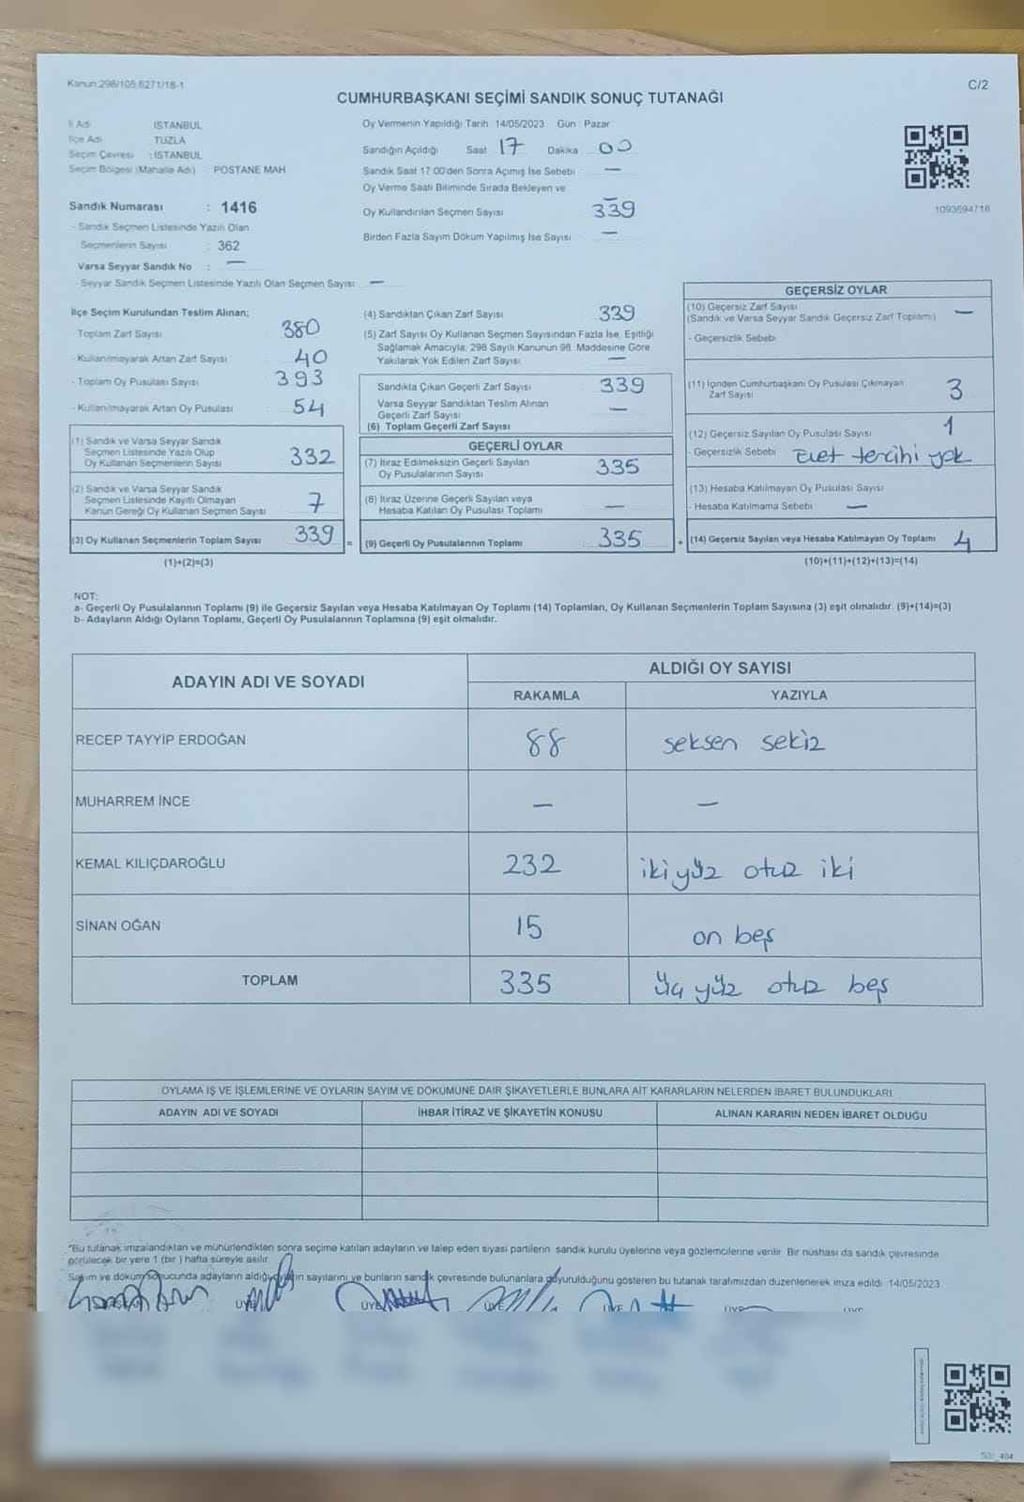 Kanun:298/105,6271/18-1
C/2
CUMHURBAŞKANI SEÇİMİ SANDIK SONUÇ TUTANAĞI
İl Adı : İSTANBUL
İlçe Adı : TUZLA
Seçim Çevresi : İSTANBUL
Seçim Bölgesi (Mahalle Adı) : POSTANE MAH
Sandık Numarası : 1416
- Sandık Seçmen Listesinde Yazılı Olan
Seçmenlerin Sayısı : 362
Varsa Seyyar Sandık No : —
- Seyyar Sandık Seçmen Listesinde Yazılı Olan Seçmen Sayısı : —
Oy Vermenin Yapıldığı Tarih : 14/05/2023 Gün : Pazar
Sandığın Açıldığı Saat 17 Dakika 00
Sandık Saat 17:00'den Sonra Açılmış İse Sebebi —
Oy Verme Saati Bitiminde Sırada Bekleyen ve
Oy Kullandırılan Seçmen Sayısı 339
Birden Fazla Sayım Döküm Yapılmış İse Sayısı —
1093594716
İlçe Seçim Kurulundan Teslim Alınan;
- Toplam Zarf Sayısı 380
- Kullanılmayarak Artan Zarf Sayısı 40
- Toplam Oy Pusulası Sayısı 393
- Kullanılmayarak Artan Oy Pusulası 54
(1) Sandık ve Varsa Seyyar Sandık
Seçmen Listesinde Yazılı Olup
Oy Kullanan Seçmenlerin Sayısı 332
(2) Sandık ve Varsa Seyyar Sandık
Seçmen Listesinde Kayıtlı Olmayan
Kanun Gereği Oy Kullanan Seçmen Sayısı 7
(3) Oy Kullanan Seçmenlerin Toplam Sayısı 339 =
(1)+(2)=(3)
(4) Sandıktan Çıkan Zarf Sayısı 339
(5) Zarf Sayısı Oy Kullanan Seçmen Sayısından Fazla İse, Eşitliği
Sağlamak Amacıyla, 298 Sayılı Kanunun 98. Maddesine Göre
Yakılarak Yok Edilen Zarf Sayısı —
Sandıkta Çıkan Geçerli Zarf Sayısı 339
Varsa Seyyar Sandıktan Teslim Alınan
Geçerli Zarf Sayısı —
(6) Toplam Geçerli Zarf Sayısı
GEÇERLİ OYLAR
(7) İtiraz Edilmeksizin Geçerli Sayılan
Oy Pusulalarının Sayısı 335
(8) İtiraz Üzerine Geçerli Sayılan veya
Hesaba Katılan Oy Pusulası Toplamı —
(9) Geçerli Oy Pusulalarının Toplamı 335 +
GEÇERSİZ OYLAR
(10) Geçersiz Zarf Sayısı
(Sandık ve Varsa Seyyar Sandık Geçersiz Zarf Toplamı) —
- Geçersizlik Sebebi
(11) İçinden Cumhurbaşkanı Oy Pusulası Çıkmayan
Zarf Sayısı 3
(12) Geçersiz Sayılan Oy Pusulası Sayısı 1
- Geçersizlik Sebebi Evet tercihi yok
(13) Hesaba Katılmayan Oy Pusulası Sayısı
- Hesaba Katılmama Sebebi —
(14) Geçersiz Sayılan veya Hesaba Katılmayan Oy Toplamı 4
(10)+(11)+(12)+(13)=(14)
NOT:
a- Geçerli Oy Pusulalarının Toplamı (9) ile Geçersiz Sayılan veya Hesaba Katılmayan Oy Toplamı (14) Toplamları, Oy Kullanan Seçmenlerin Toplam Sayısına (3) eşit olmalıdır. (9)+(14)=(3)
b- Adayların Aldığı Oyların Toplamı, Geçerli Oy Pusulalarının Toplamına (9) eşit olmalıdır.
ADAYIN ADI VE SOYADI
ALDIĞI OY SAYISI
RAKAMLA YAZIYLA
RECEP TAYYİP ERDOĞAN 88 seksen sekiz
MUHARREM İNCE — —
KEMAL KILIÇDAROĞLU 232 ikiyüz otuz iki
SİNAN OĞAN 15 on beş
TOPLAM 335 üç yüz otuz beş
OYLAMA İŞ VE İŞLEMLERİNE VE OYLARIN SAYIM VE DÖKÜMÜNE DAİR ŞİKAYETLERLE BUNLARA AİT KARARLARIN NELERDEN İBARET BULUNDUKLARI
ADAYIN ADI VE SOYADI İHBAR İTİRAZ VE ŞİKAYETİN KONUSU ALINAN KARARIN NEDEN İBARET OLDUĞU
*Bu tutanak imzalandıktan ve mühürlendikten sonra seçime katılan adayların ve talep eden siyasi partilerin sandık kurulu üyelerine veya gözlemcilerine verilir. Bir nüshası da sandık çevresinde
görülecek bir yere 1 (bir ) hafta süreyle asılır.
Sayım ve döküm sonucunda adayların aldığı oyların sayılarını ve bunların sandık çevresinde bulunanlara duyurulduğunu gösteren bu tutanak tarafımızdan düzenlenerek imza edildi. 14/05/2023
ÜYE ÜYE ÜYE ÜYE ÜYE ÜYE